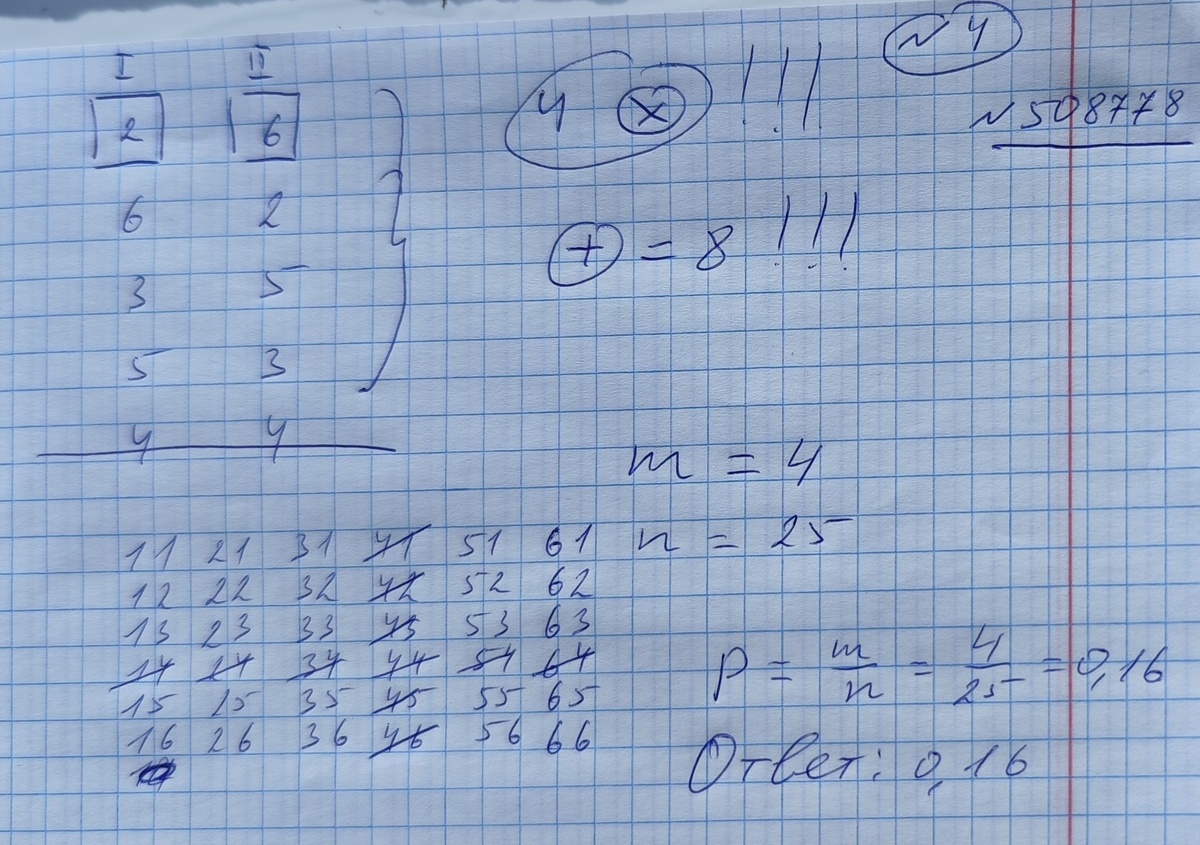 № 4
№ 508778
I II
2 6
6 2
3 5
5 3
4 4
4 × !!!
+ = 8 !!!
m = 4
n = 25
11 21 31 41 51 61
12 22 32 42 52 62
13 23 33 43 53 63
14 24 34 44 54 64
15 25 35 45 55 65
16 26 36 46 56 66
p = m/n = 4/25 = 0,16
Ответ: 0,16